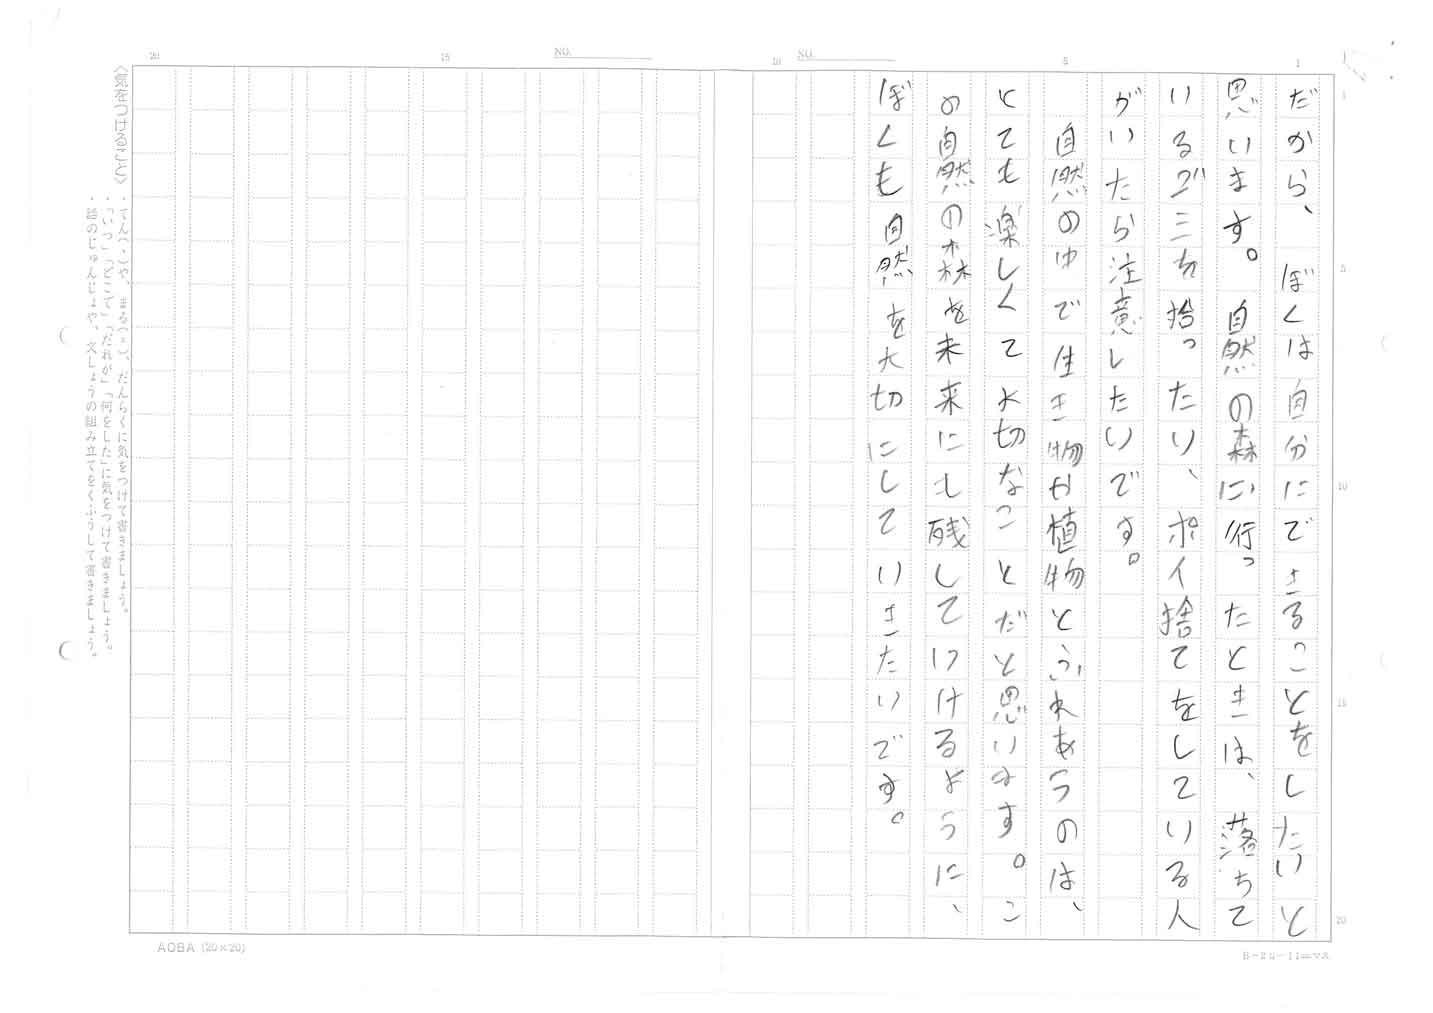 だから、ぼくは自分にできることをしたいと
思います。自然の森に行ったときは、落ちて
いるゴミを拾ったり、ポイ捨てをしている人
がいたら注意したいです。
自然の中で生き物や植物とふれあうのは、
とても楽しくて大切なことだと思います。こ
の自然の森を未来にも残していけるように、
ぼくも自然を大切にしていきたいです。
<気をつけること>
・てん(、)や、まる(。)、だんらくに気をつけて書きましょう。
・「いつ」「どこで」「だれが」「何をした」に気をつけて書きましょう。
・話のじゅんじょや、文しょうの組み立てをくふうして書きましょう。
NO.
NO.
1
5
10
15
20
1
5
10
15
20
AOBA (20×20)